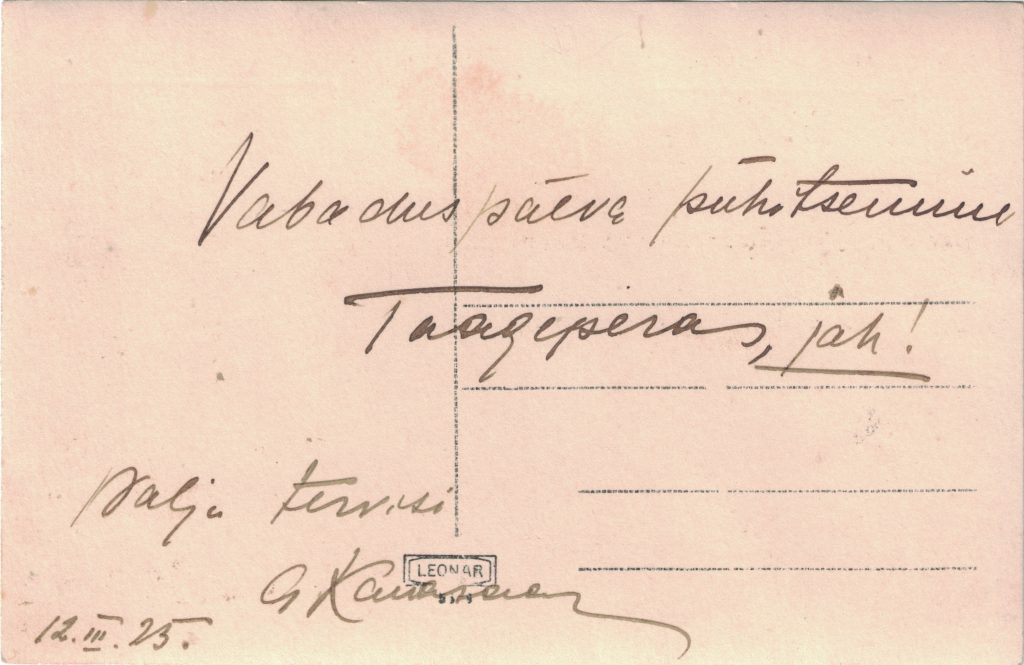 Vabaduspäeva pühitsemine
Taageperas, jah!
palju tervisi
LEONAR
G
12.III.25.